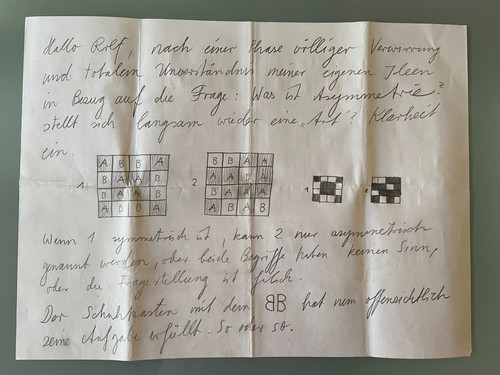 Hallo Rolf, nach einer Phase völliger Verwirrung
und totalem Unverständnis meiner eigenen Ideen
in Bezug auf die Frage: Was ist Asymmetrie?
stellt sich langsam wieder eine „Art"? Klarheit
ein.
A B B A
B A A B
1 B A A B
A B B A
2 B B A A
1
Wenn 1 symmetrisch ist, kann 2 nur asymmetrisch
genannt werden, oder beide Begriffe haben keinen Sinn,
oder die Fragestellung ist falsch.
Der Schuhkasten mit dem BB hat nun offensichtlich
seine Aufgabe erfüllt. So oder so.